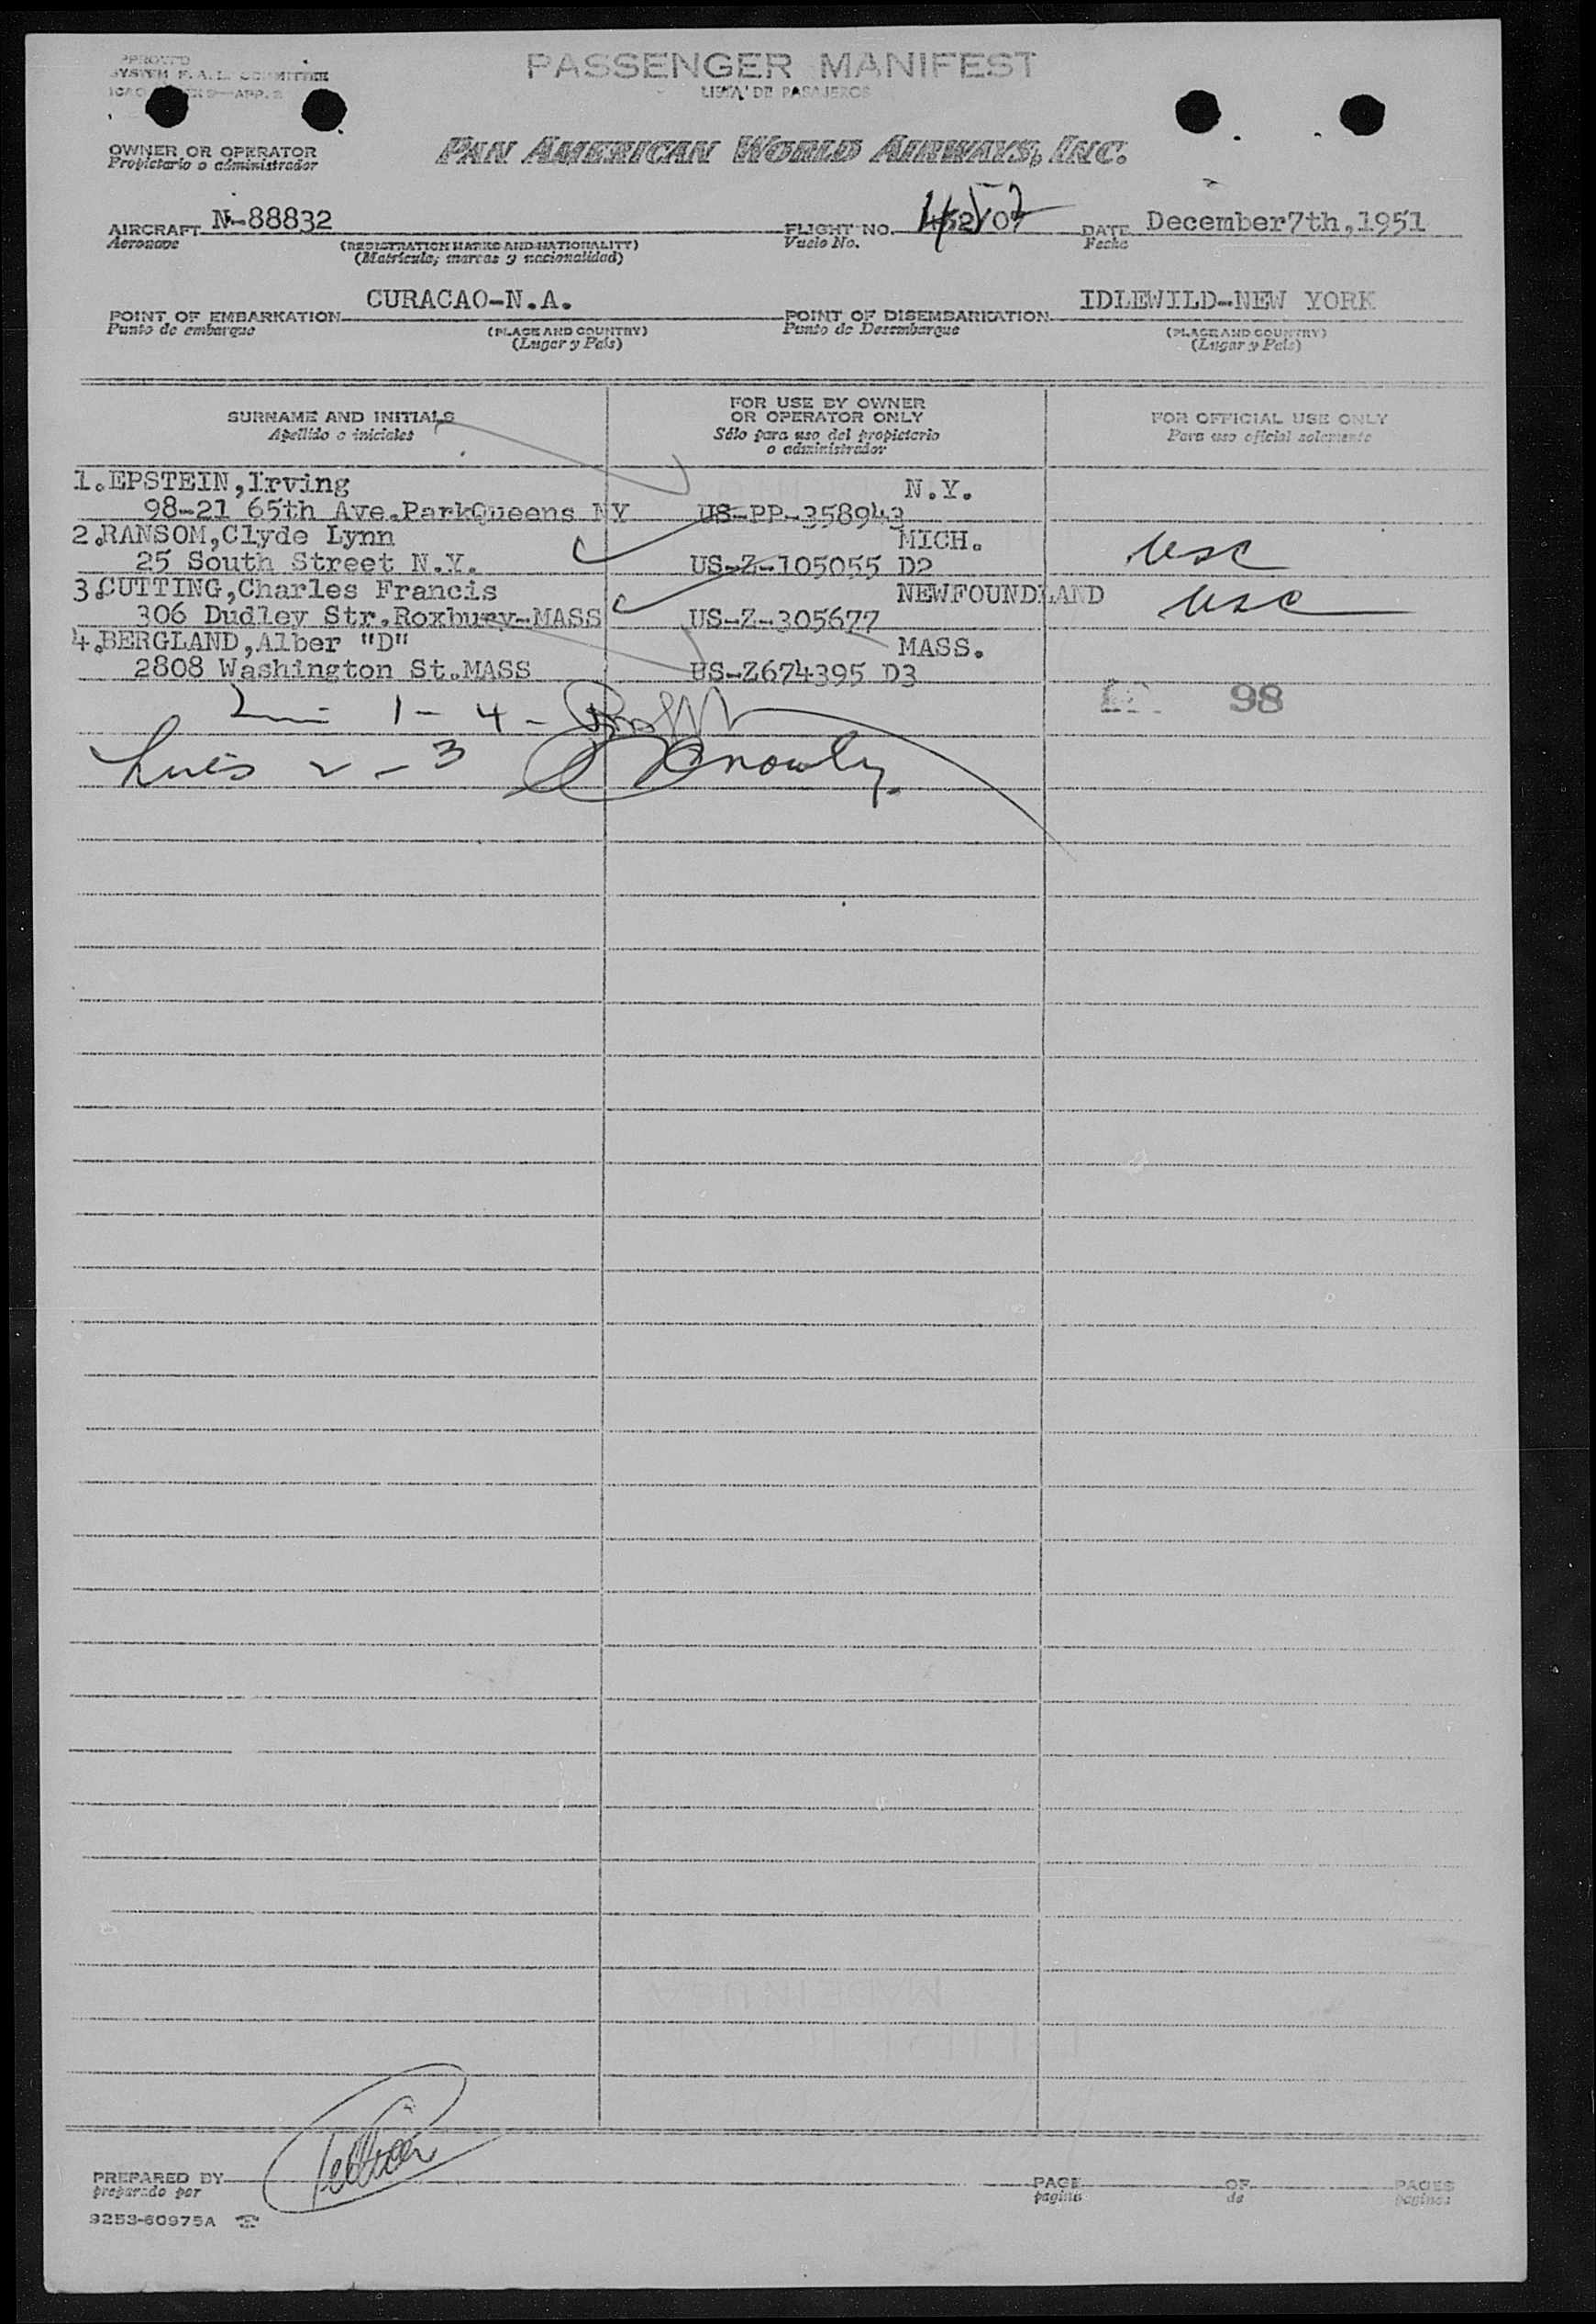 PASSENGER MANIFEST
LISTA DE PASAJEROS
SYSTEM F.A.L. COMMITTEE
APP. 2
OWNER OR OPERATOR
Propictario o administrador
PAN AMERICAN WORLD AIRWAYS, INC.
AIRCRAFT N-88832 FLIGHT NO. DATE December7th,1951
Aeronave (REGISTRATION MARKS AND NATIONALITY) Vuelo No. Fecha
(Matrícula, marcas y nacionalidad)
POINT OF EMBARKATION CURACAO-N.A. POINT OF DISEMBARKATION IDLEWILD-NEW YORK
Punto de embarque (PLACE AND COUNTRY) Punto de Desembarque (PLACE AND COUNTRY)
(Lugar y País) (Lugar y País)
SURNAME AND INITIALS FOR USE BY OWNER OR OPERATOR ONLY FOR OFFICIAL USE ONLY
Apellido o iniciales Sólo para uso del propictario o administrador Para uso oficial solamente
1.EPSTEIN,Irving N.Y.
98-21 65th Ave.ParkQueens NY US-PP-358943
2.RANSOM,Clyde Lynn MICH.
25 South Street N.Y. US-Z-105055 D2 usc
3.CUTTING,Charles Francis NEWFOUNDLAND
306 Dudley Str.Roxbury-MASS US-Z-305677 usc
4.BERGLAND,Alber "D" MASS.
2808 Washington St.MASS US-Z674395 D3
1 - 4 - 98
Lines 2 - 3
PREPARED BY PAGE OF PAGES
preparado por pagina de paginas
9253-60975A